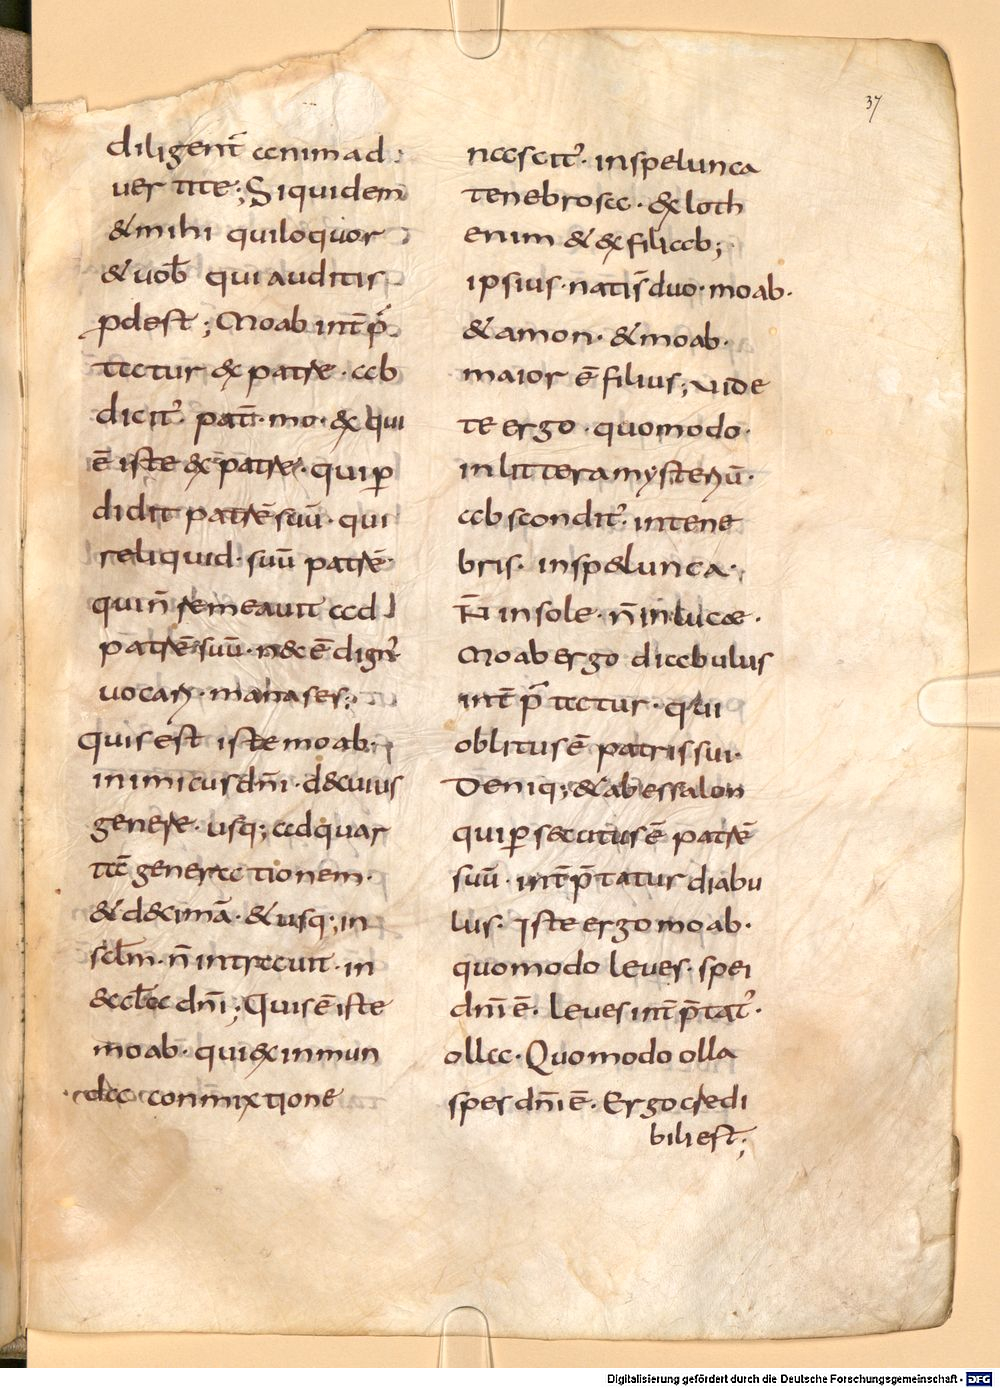 37
diligent̄ animad
vertite; Siquidem
& mihi qui loquor
& uob̄ qui auditis
pdest; Moab int̄p̄
tatur ex patre · ab
dicit᷑ pat̄ · mo · ex qui
ē iste ex patre · qui p
didit patrē suū · qui
reliquid · suū patrē ·
qui n̄ remeauit ad
patrē suū · nec ē dign᷑
uocari · manases;
quis est iste moab;
inimicus dn̄i · de cuius
genere · usq; ad quar
tā generationem ·
& decimā · & usq; in
sclm̄ · n̄ intrauit · in
& ccl̄ae dn̄i; Quis ē iste
moab · qui ex inmun
da conmixtione
nascit᷑ · in spelunca
tenebrosa · ex loth
enim & ex filiab;
ipsius · natis̄ duo · moab ·
& amon · & moab ·
maior ē filius; uide
te ergo · quomodo ·
in littera mysteriū ·
abscondit᷑ · in tene
bris · in spelunca ·
N̄ in sole · n̄ in lucae ·
Moab ergo diabulus
int̄p̄tatur · qui
oblitus ē patris sui ·
Deniq; & abessalon
qui psecutus ē patrē
suū · int̄p̄tatur diabu
lus · Iste ergo moab ·
quomodo leues · spei
dn̄i ē · leues int̄p̄tat᷑ ·
olla · Quomodo olla
spes dn̄i ē · Ergo credi
bili est;
Digitalisierung gefördert durch die Deutsche Forschungsgemeinschaft · DFG